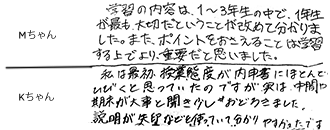 学習の内容は、1~3年生の中で、1年生
が最も大切だということが改めて分かりま
Mちゃん
した。また、ポイントをおさえることは学習
する上でより、重要だと思いました。
私は最初、授業態度が内申書にほとんど
いびくと思っていたのですが実は、中間や
Kちゃん
期末が大事と聞き少しおどろきました。
説明が矢望なども使っていて分かりやすかったです